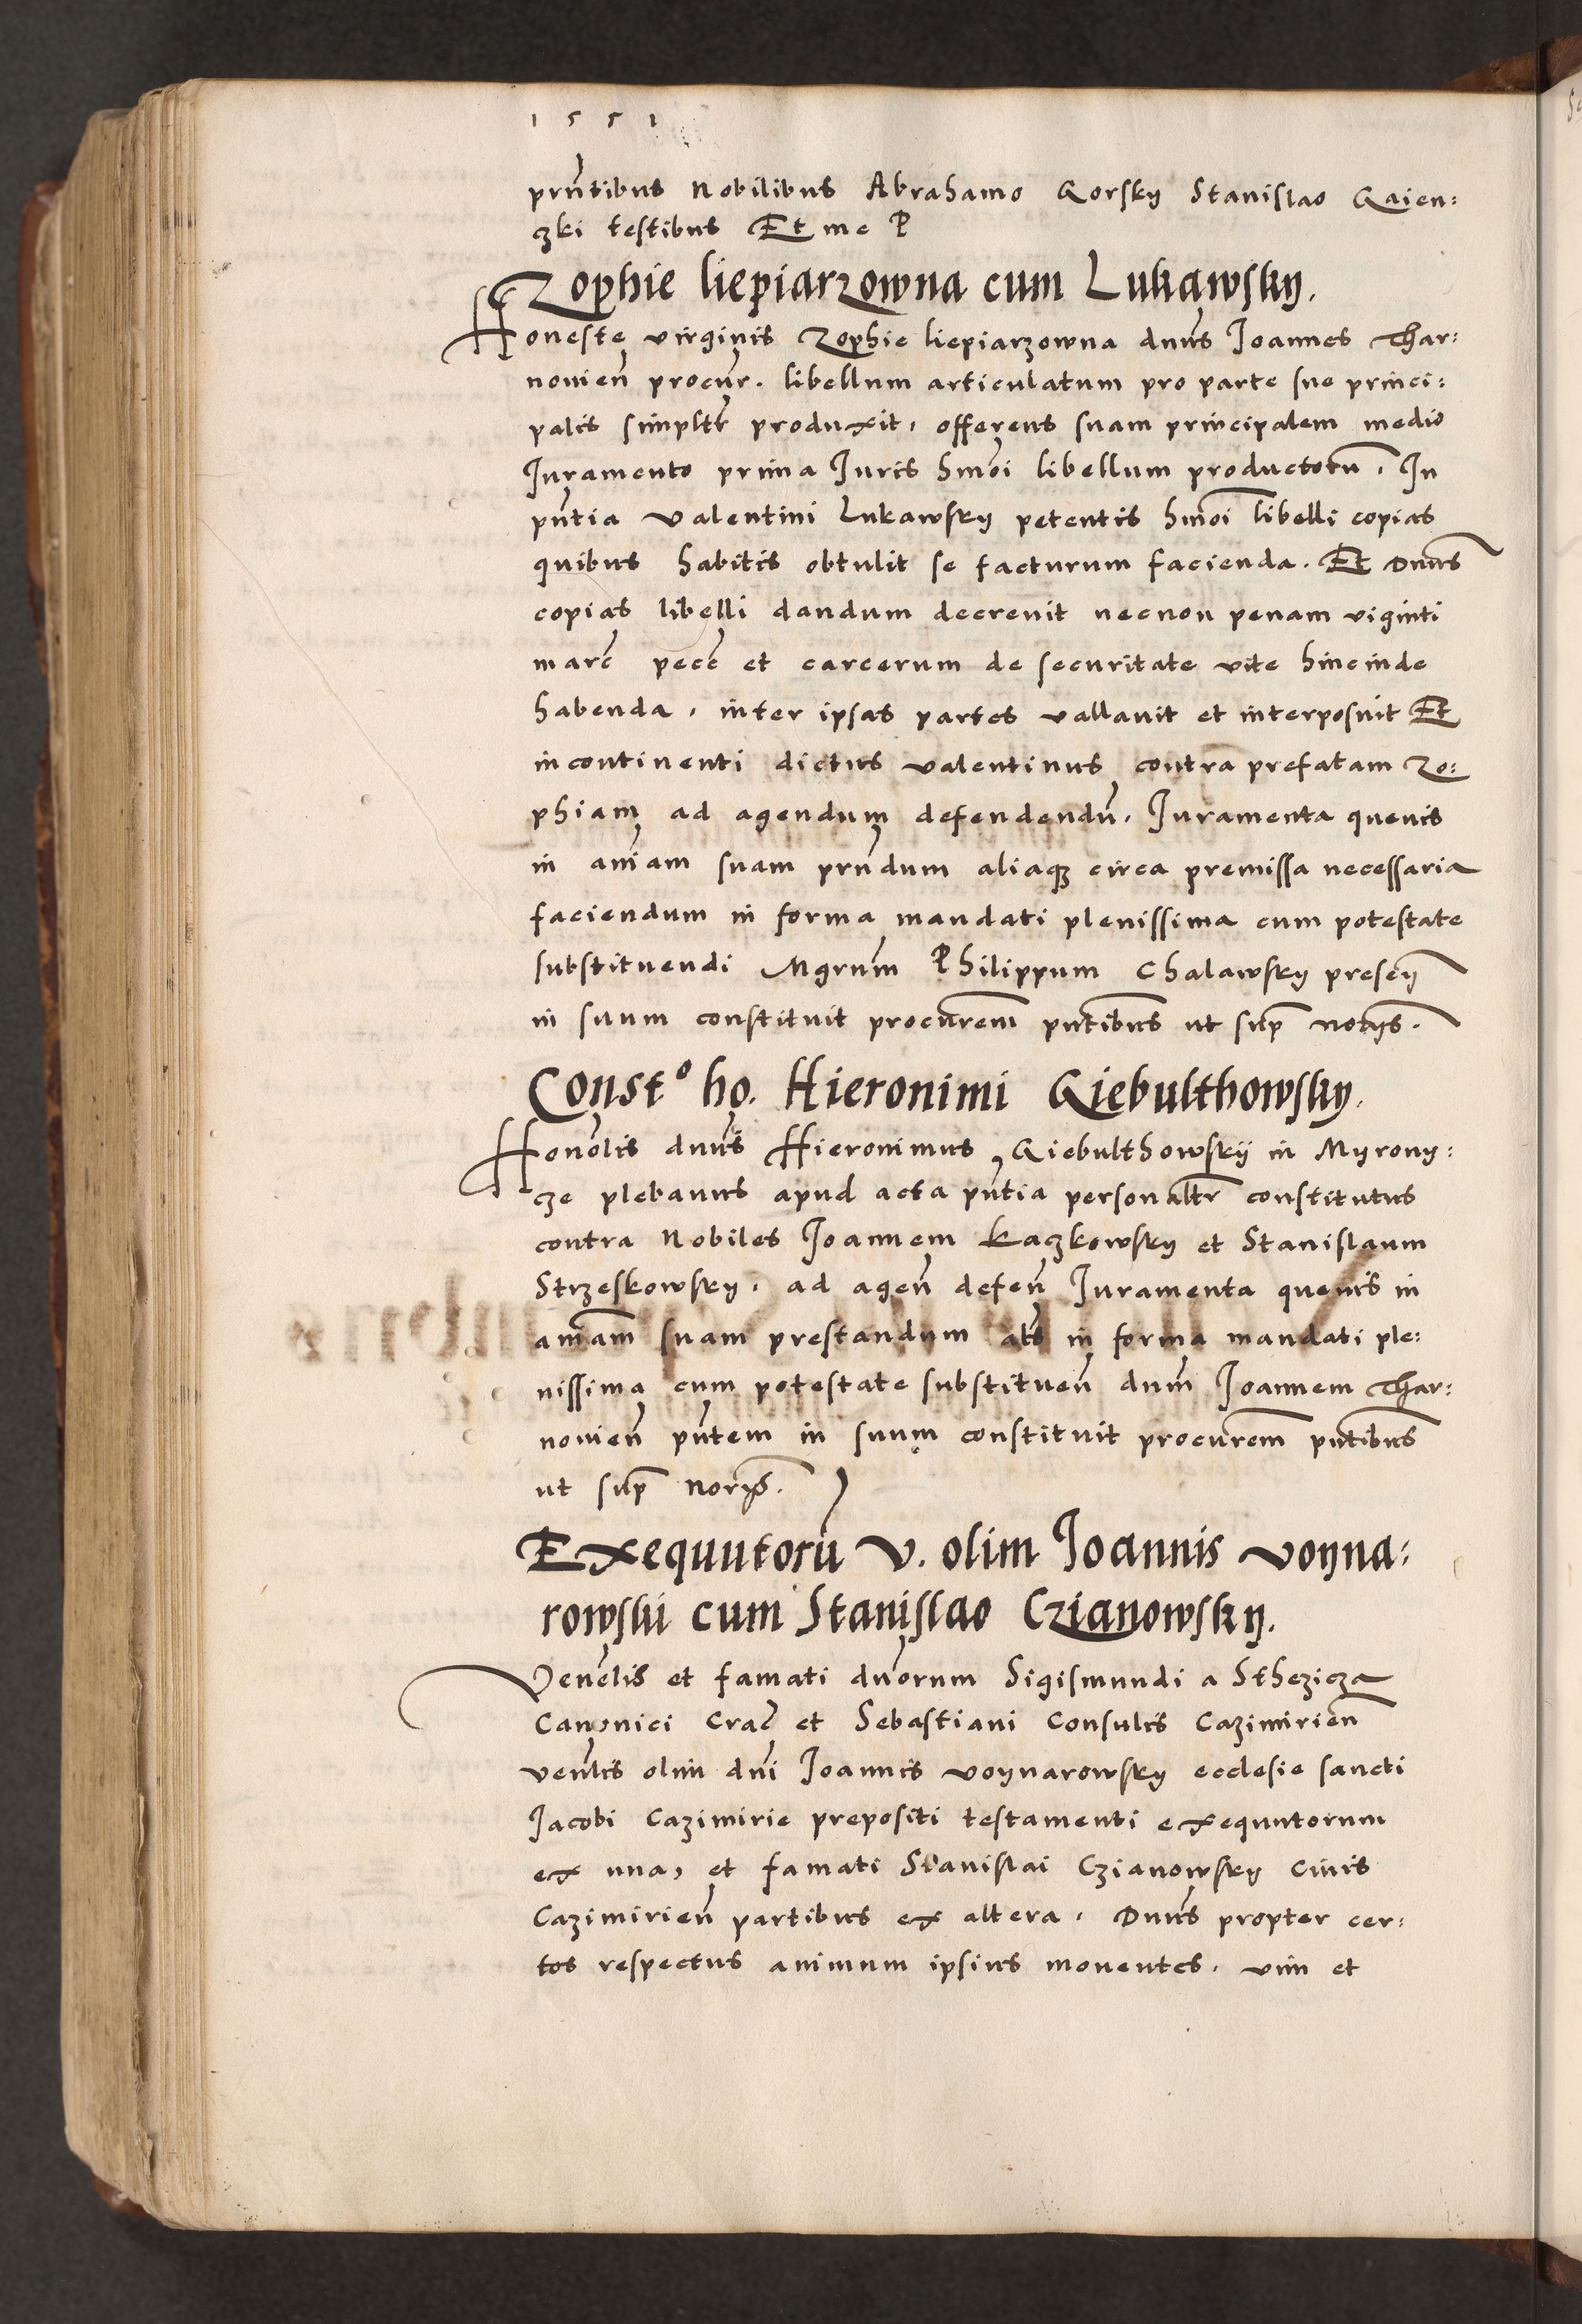 1551
prñtibus Nobilibus Abrahamo Gorsky Stanislao Gaien:
czki testibus Et me P
Zophie liepiarzowna cum Lukawsky.
Honeste virginis Zophie liepiarzowna dnũs Joannes Thar:
novieñ procur̃. libellum articulatum pro parte sue princi:
palis simpltr̃ produxit, offerens suam principalem medio
Juramento prima Juris hm̃oi libellum productorũ. In
pñtia Valentini Lukawsky petentis hm̃oi libelli copias
quibus habitis obtulit se facturum facienda. Et Dnũs
copias libelli dandum decrevit necnon penam viginti
marc̃ pecc̃ et carcerum de securitate vite hincinde
habenda, inter ipsas partes vallavit et interposuit Et
incontinenti dictus Valentinus contra prefatam Zo:
phiam ad agendum defendendũ. Juramenta quevis
in aniãm suam prñdum aliaqz circa premissa necessaria
faciendum in forma mandati plenissima cum potestate
substituendi Mgrum̃ Philippum Chalawsky
in suum constituit procurem̃ pntibus̃ ut sup̃
Const° ho. Hieronimi Giebulthowsky.
Honolis̃ dnũs Hieronimus Giebulthowskij in Myrony:
cze plebanus apud acta pñtia personaltr̃ constitutus
contra Nobiles Joannem Kaczkowsky et Stanislaum
Strzeskowsky. ad ageñ defeñ Juramenta quevis in
amãm suam prestandum als̃ in forma mandati ple:
nissima cum potestate substitueñ dnum̃ Joannem Thar:
novieñ pñtem in suum constituit procurem̃ pntibus̃
ut sup̃
Exequutorũ V. olim Joannis Voyna:
rowski cum Stanislao Czianowsky.
Venelis̃ et famati dnõrum Sigismundi a Sthezicza
Canonici Crac̃ et Sebastiani Consulis Cazimirieñ
venlis̃ olim dnĩ Joannis Voynarowsky ecclesie sancti
Jacobi Cazimirie prepositi testamenti exequutorum
ex una, et famati Stanislai Czianowsky Civis
Cazimirieñ partibus ex altera. Dnũs propter cer:
tos respectus animum ipsius moventes. vim et